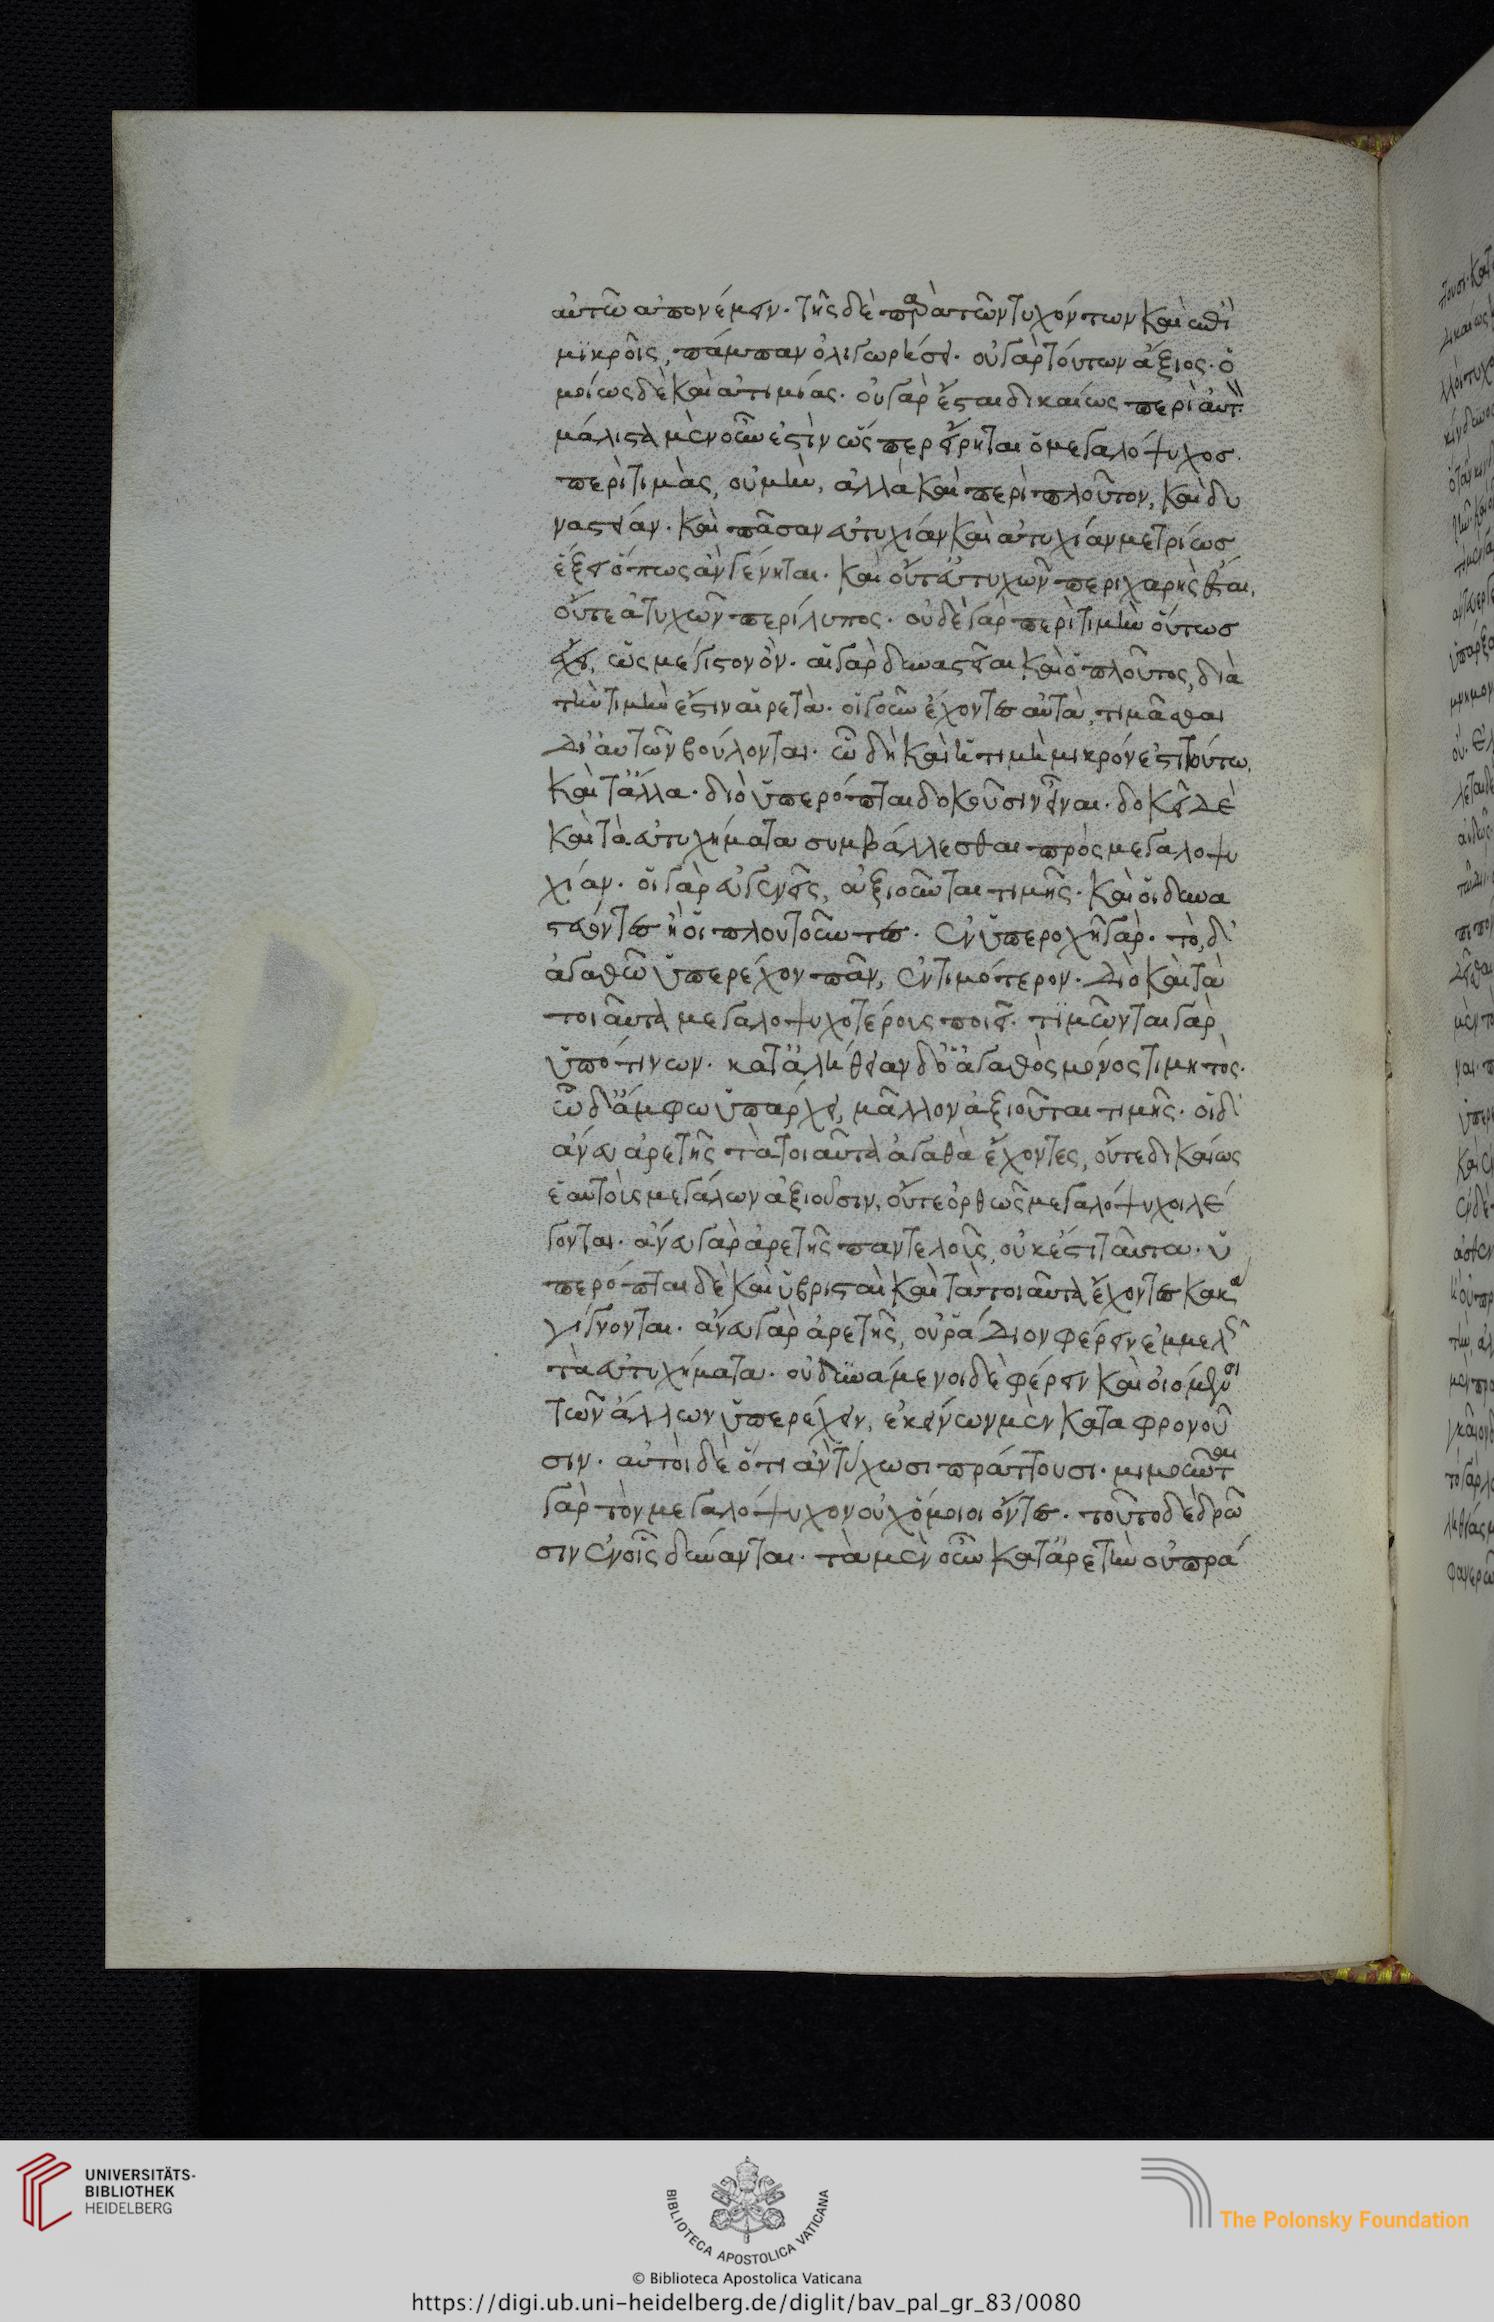 αὐτῶ ἀπονέμειν. τῆς δὲ παρὰ τῶν τυχόντων καὶ ἐπὶ
μικροῖς, πάμπαν ὀλιγωρήσει. οὐ γὰρ τούτων ἄξιος. ὁ
μοίως δὲ καὶ ἀτιμίας. οὐ γὰρ ἔσται δικαίως περὶ αὐτὸν.
μάλιστα μὲν οὖν ἐστὶν ὥσπερ εἴρηται ὁ μεγαλόψυχοσ
περὶ τιμὰς, οὐ μὴν, ἀλλὰ καὶ περὶ πλοῦτον, καὶ δυ
ναστείαν. καὶ πᾶσαν εὐτυχίαν καὶ ἀτυχίαν μετρίωσ
ἕξει ὅπως ἂν γένηται. καὶ οὔτ εὐτυχῶν περιχαρὴς ἔσται,
οὔτε ἀτυχῶν περίλυπος. οὐδὲ γὰρ περὶ τιμὴν οὕτωσ
ἔχει, ὡς μέγιστον ὂν. αἱ γὰρ δυναστεῖαι καὶ ὁ πλοῦτος, διὰ
τὴν τιμήν ἐστιν αἱρετὰ. οἱ γοῦν ἔχοντεσ αὐτὰ, τιμᾶσθαι
δι' αὐτῶν βούλονται. ὧ δὴ καὶ ἡ τιμὴ μικρόν ἐστι τούτω,
καὶ τἆλλα. διὸ ὑπερόπται δοκοῦσιν εἶναι. δοκεῖ δὲ
καὶ τὰ εὐτυχήματα συμβάλλεσθαι πρὸς μεγαλοψυ
χίαν. οἱ γὰρ εὐγενεῖς, ἀξιοῦνται τιμῆς. καὶ οἱ δυνα
στεύοντεσ ἢ οἱ πλουτοῦντεσ. ἐν ὑπεροχῆ γὰρ. τὸ, δ'
ἀγαθῶ ὑπερέχον πᾶν, ἐντιμότερον. διὸ καὶ τὰ
τοιαῦτα μεγαλοψυχοτέρους ποιεῖ. τιμῶνται γὰρ
ὑπό τινων. κατ' ἀλήθειαν δ' ὁ ἀγαθὸς μόνος τιμητὸς.
ὧ δ' ἄμφω ὑπάρχει, μᾶλλον ἀξιοῦται τιμῆς. οἱ δ'
ἄνευ ἀρετῆς τὰ τοιαῦτα ἀγαθὰ ἔχοντες, οὔτε δικαίως
ἑαυτοὺς μεγάλων ἀξιοῦσιν, οὔτε ὀρθῶς μεγαλόψυχοι λέ
γονται. ἄνευ γὰρ ἀρετῆς παντελοῦς, οὐκ ἔστι ταῦτα. ὑ
περόπται δὲ καὶ ὑβρισταὶ καὶ τὰ τοιαῦτα ἔχοντεσ κακοὶ
γίγνονται. ἄνευ γὰρ ἀρετῆς, οὐ ῥάδιον φέρειν ἐμμελῶς
τὰ εὐτυχήματα. οὐ δυνάμενοι δὲ φέρειν καὶ οἰόμενοι
τῶν ἄλλων ὑπερέχειν, ἐκείνων μὲν καταφρονοῦ
σιν. αὐτοὶ δὲ ὅτι ἂν τύχωσι πράττουσι. μιμοῦνται
γὰρ τὸν μεγαλόψυχον οὐχ ὅμοιοι ὄντεσ. τοῦτο δὲ δρῶ
σιν ἐν οἷς δύνανται. τὰ μὲν οὖν κατ' ἀρετὴν οὐ πρά
UNIVERSITÄTS-
BIBLIOTHEK
HEIDELBERG
BIBLIOTECA APOSTOLICA VATICANA
The Polonsky Foundation
© Biblioteca Apostolica Vaticana
https://digi.ub.uni-heidelberg.de/diglit/bav_pal_gr_83/0080